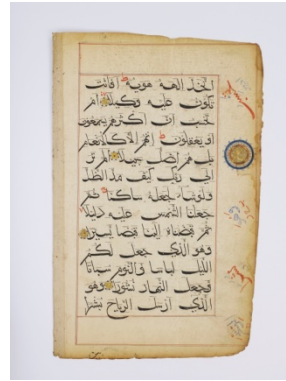 اتخذ الهه هويه افانت
تكون عليه وكيلا ام
تحسب ان اكثرهم يسمعون
او يعقلون ان هم الا كالانعام
بل هم اضل سبيلا الم تر
الى ربك كيف مد الظل
ولو شا لجعله ساكنا ثم
جعلنا الشمس عليه دليلا
ثم قبضناه الينا قبضا يسيرا
وهو الذي جعل لكم
الليل لباسا والنوم سباتا
وجعل النهار نشورا وهو
الذي ارسل الرياح بشرا